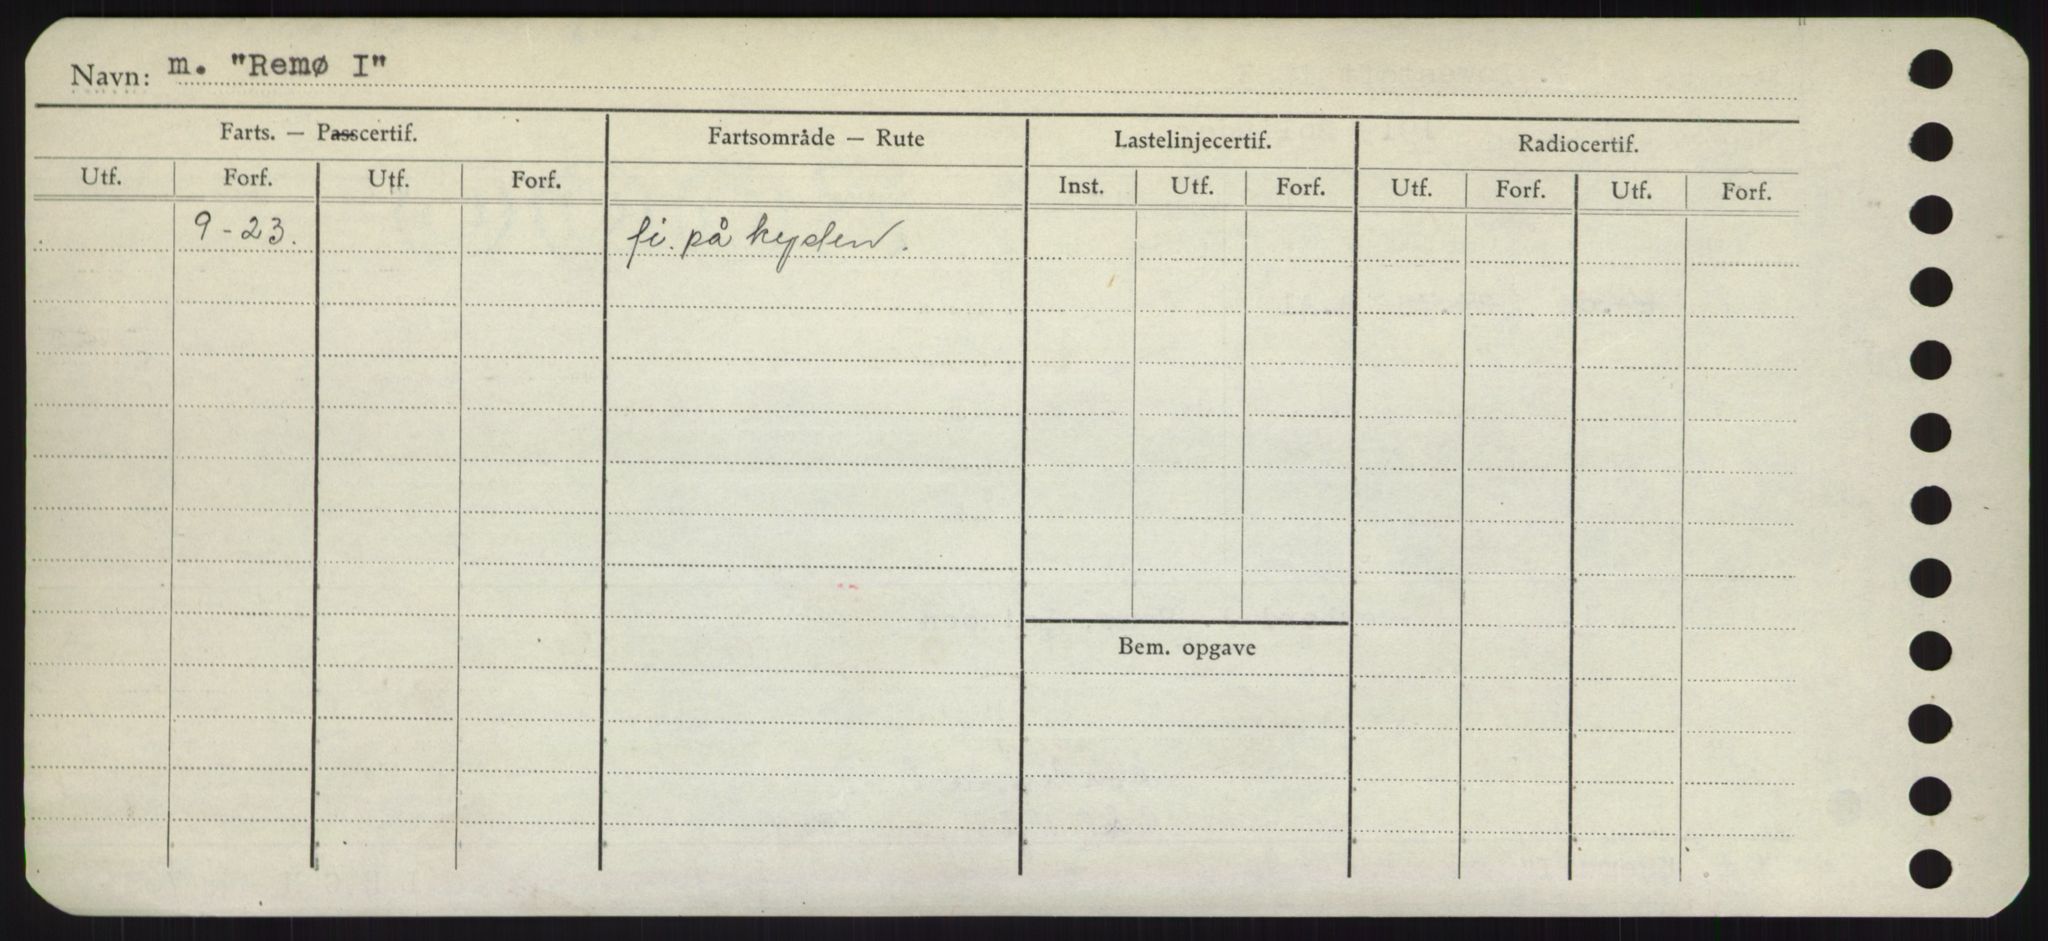 Navn: m. "Remø I"
Farts. — Passcertif. Fartsområde — Rute Lastelinjecertif. Radiocertif.
Utf. Forf. Utf. Forf. Inst. Utf. Forf. Utf. Forf. Utf. Forf.
9-23. fi. på kysten.
Bem. opgave